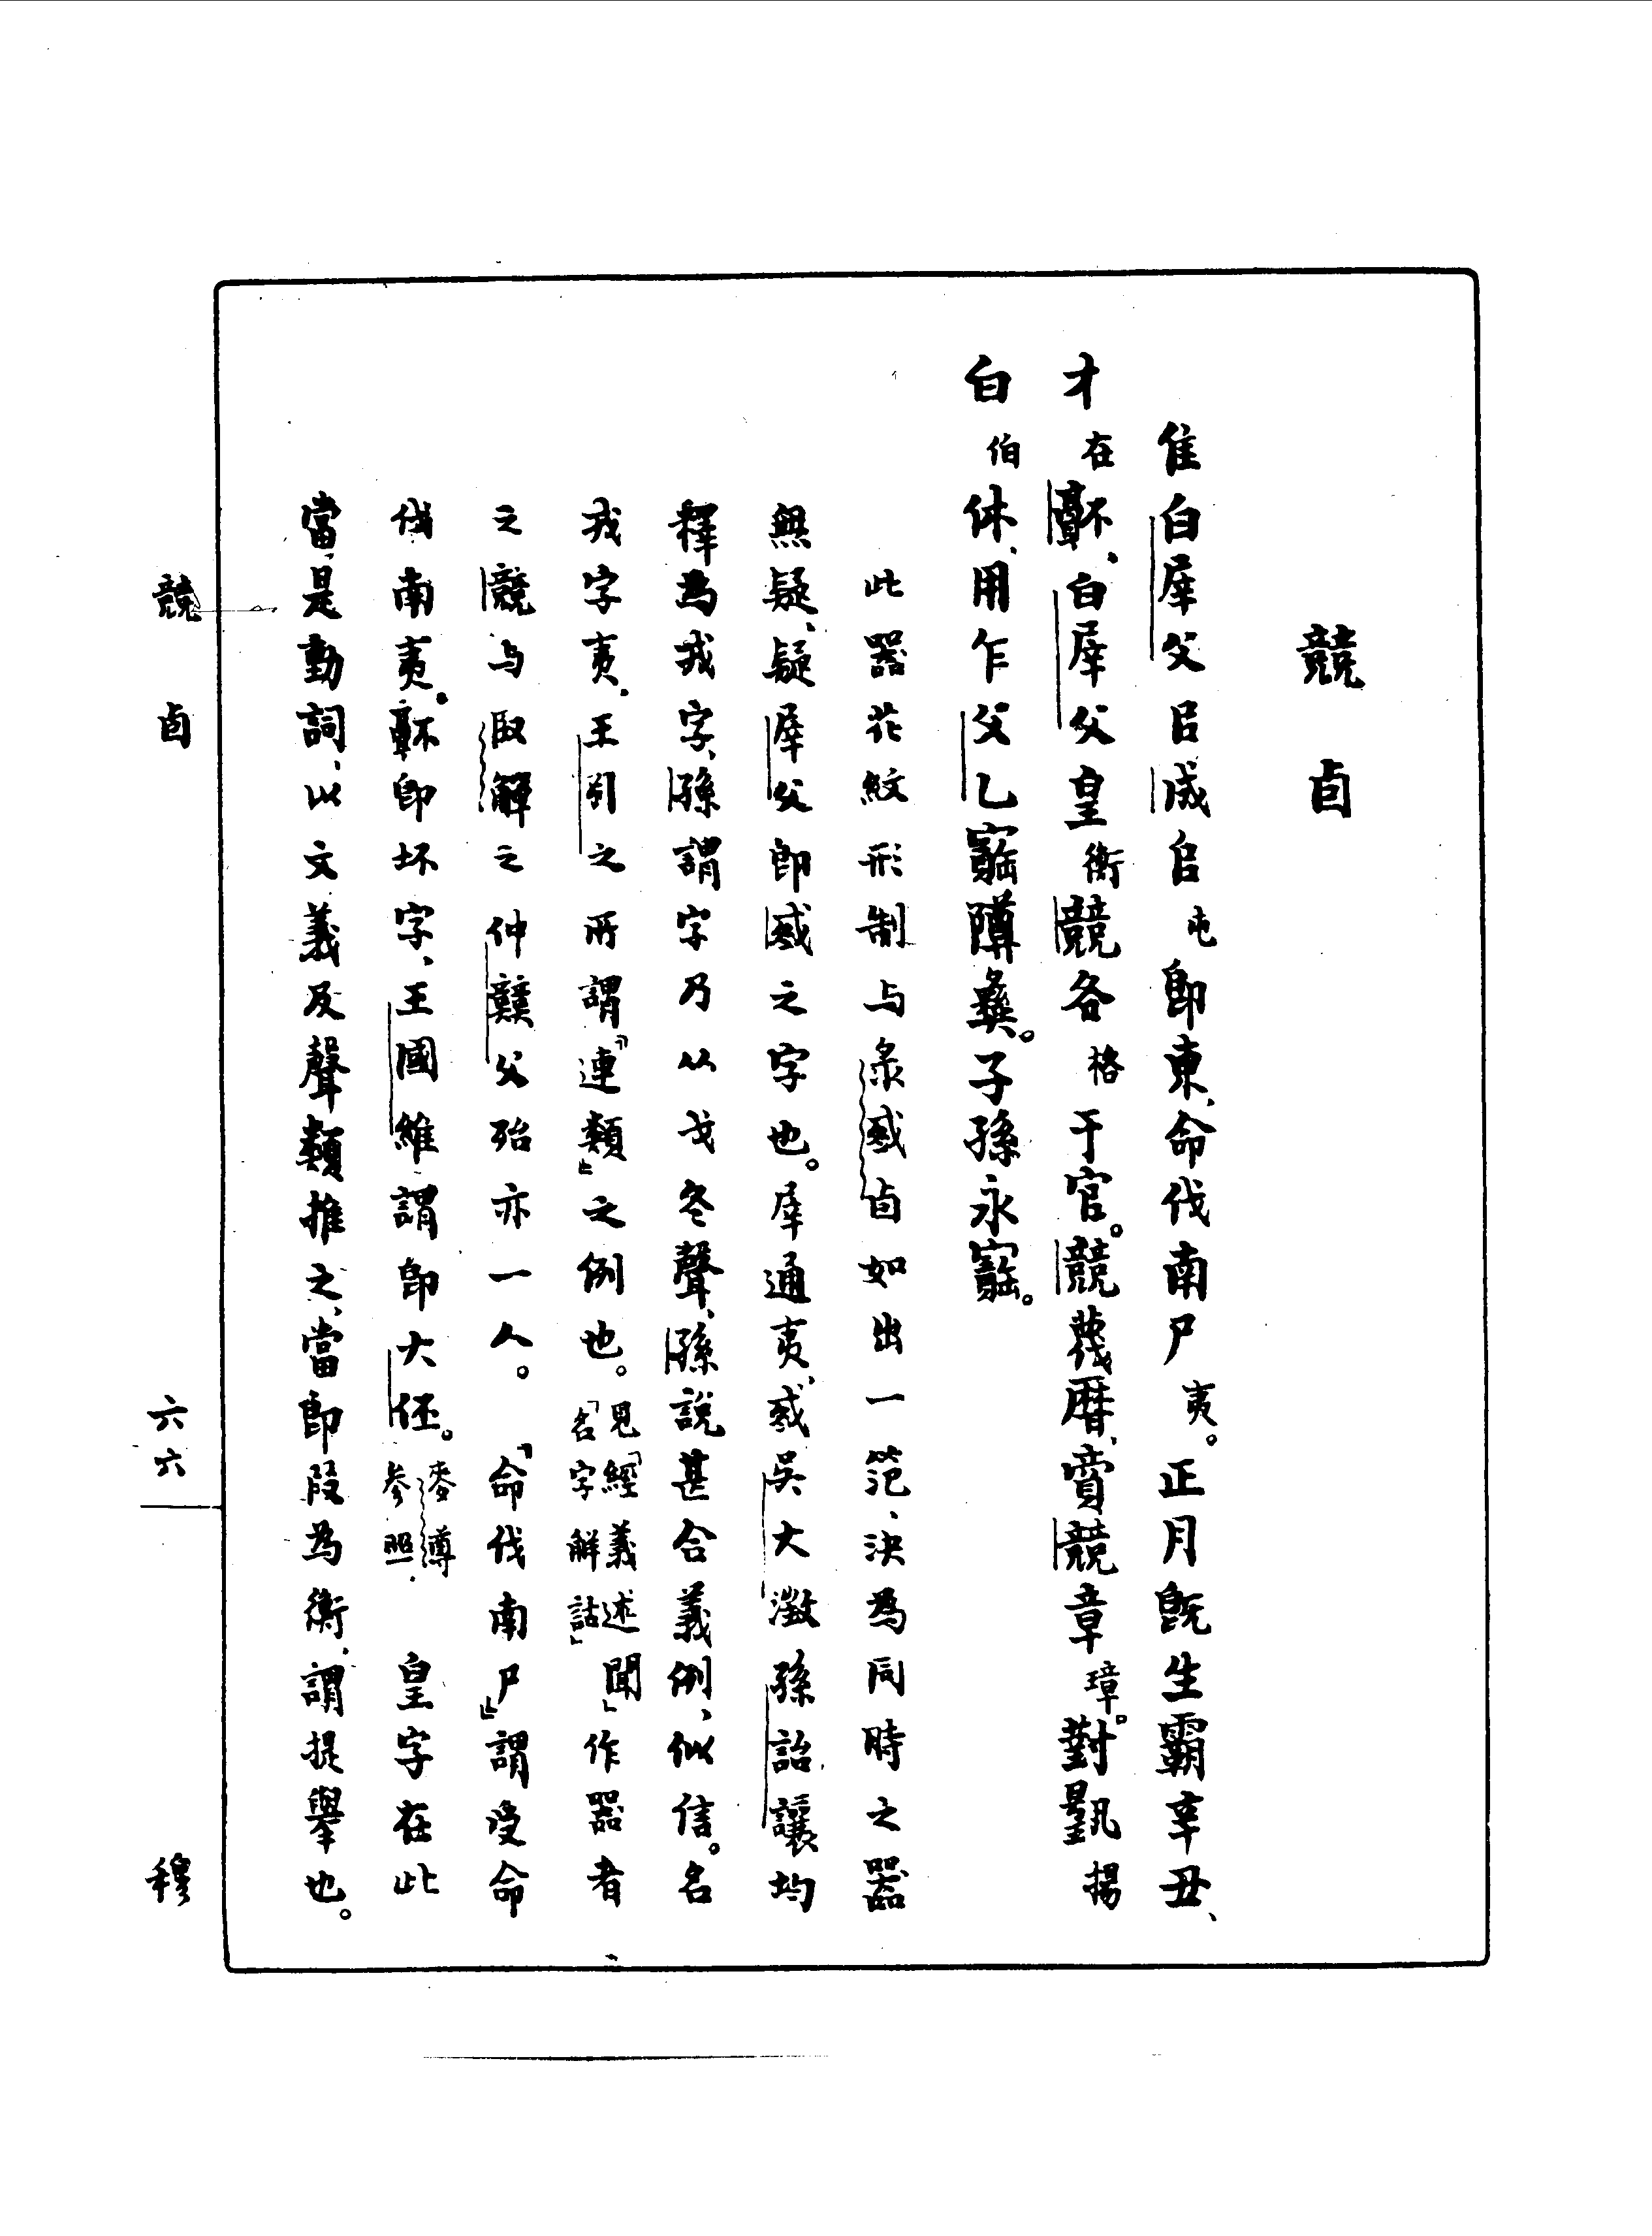 競卣
隹白屖父㠯成𠂤屯卽東、命伐南尸夷。正月旣生霸辛丑、
才在𩫨、白屖父皇衡競各格于官。競蔑曆、賞競章璋。對揚
白伯休、用乍父乙寶𨻰彝。子孫永寶。
此器花紋形制与彔㦰卣如出一笵、決為同時之器
無疑、疑屖父卽㦰之字也。屖通夷、㦰吳大澂孫詒讓均
釋為戎字、孫謂字乃从戈冬聲、孫說甚合義例、似信。名
戎字夷、王引之所謂「連類」之例也。見「經義述聞」「名字解詁」作器者
之競与䣄觶之仲競父殆亦一人。「命伐南尸」謂受命
伐南夷。𩫨卽坏字、王國維謂卽大伾。麥𨱔參照.皇字在此
當是動詞、以文義及聲類推之、當卽叚為衡、謂提舉也。
競卣
六六
穆